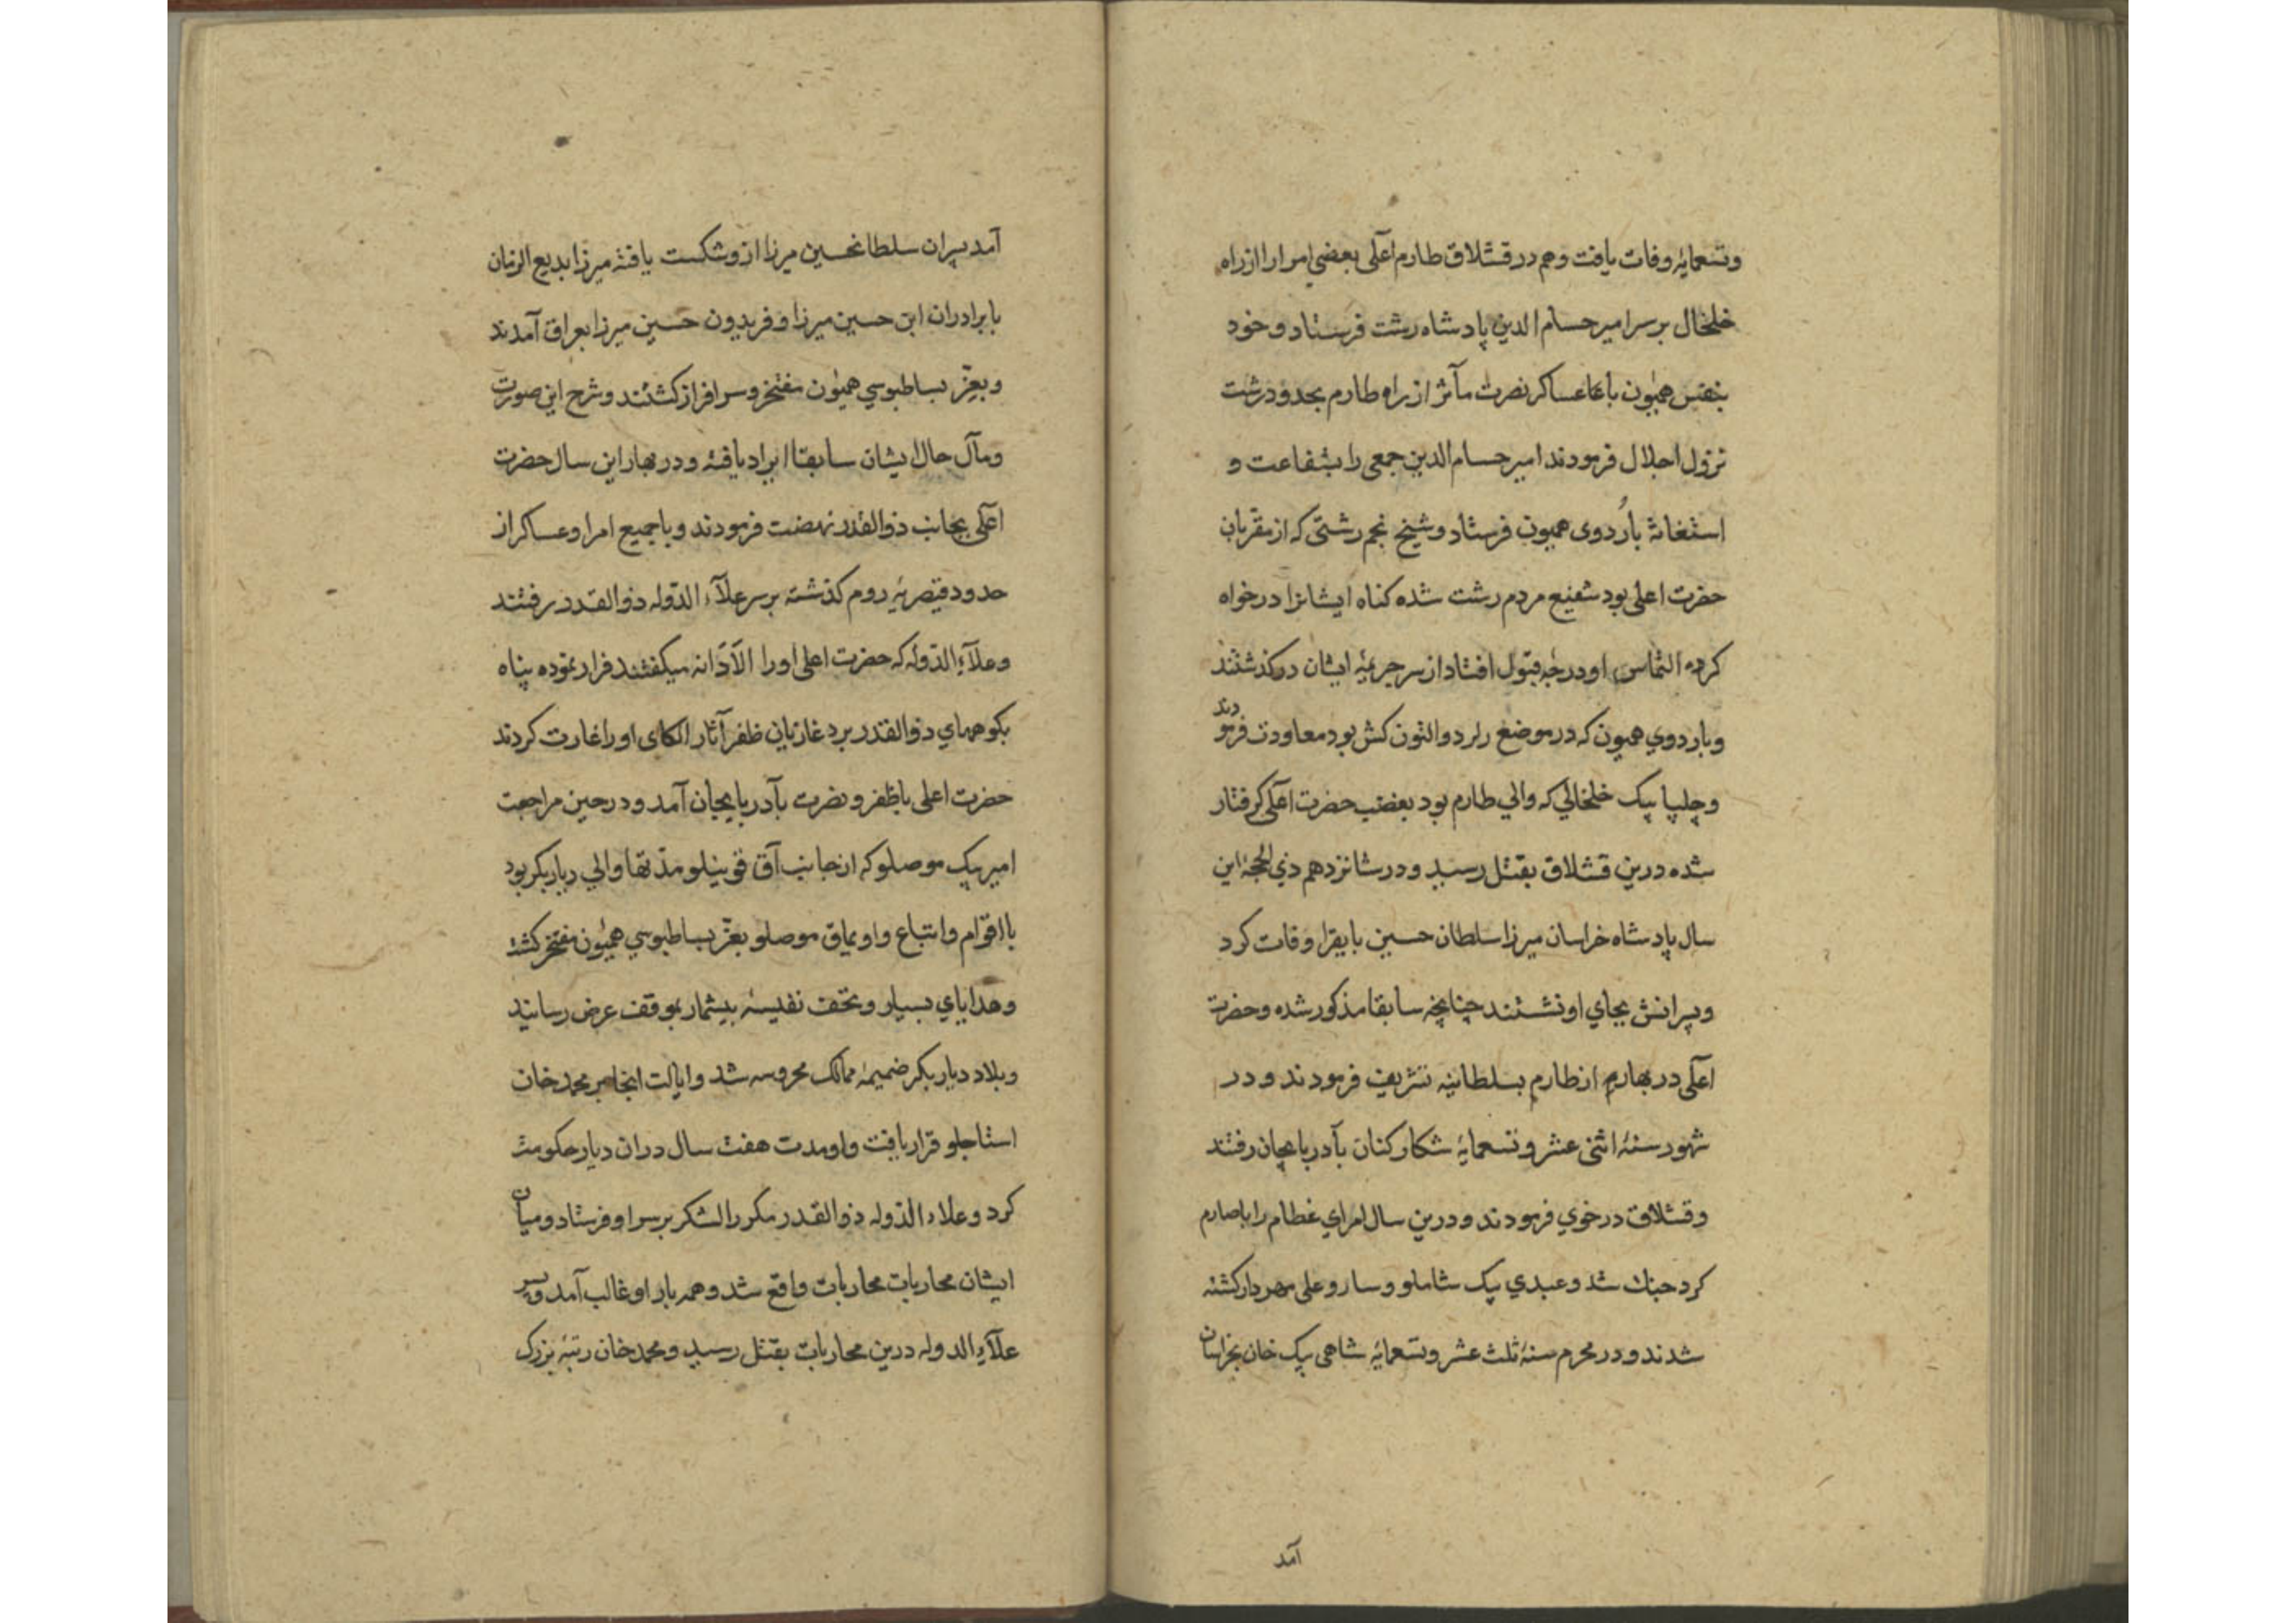 وتسعمایه وفات یافت وهم در قشلاق طارم اعلی بعضی امرا را از راه
خلخال بر سر امیر حسام الدین پادشاه رشت فرستاد و خود
بنفس همیون با عساکر نصرت مآثر از راه طارم بحدود رشت
نزول اجلال فرمودند امیر حسام الدین جمعی را بشفاعت و
استغاثه باُردوی همیون فرستاد و شیخ نجم رشتی که از مقربان
حضرت اعلی بود شفیع مردم رشت شده کناه ایشانرا درخواه
کرده التماس او درجه قبول افتاد از سر جریمه ایشان درکذشتند
وباردوی همیون که در موضع کش بود معاودت فرمودند
و چلپا بیک خلخالی که والی طارم بود بغضب حضرت اعلی کرفتار
شده درین قشلاق بقتل رسید و در شانزدهم ذی الحجه این
سال پادشاه خراسان میرزا سلطان حسین بایقرا وفات کرد
وپسرانش بجای او نشستند چنانچه سابقا مذکور شده وحضرت
اعلی در بهار از طارم بسلطانیه تشریف فرمودند و در
شهور سنه اثنی عشر و تسعمایه شکار کنان بآدربایجان رفتند
وقشلاق در خوی فرمودند و درین سال امرای عظام را با صارم
کرد جنك شد و عبدی بیک شاملو و سارو علی مهردار کشته
شدند و در محرم سنه ثلث عشر وتسعمایه شاهی بیک خان بخراسان
آمد
آمد پسران سلطانحسین میرزا ازو شکست یافته میرزا بدیع الزمان
با برادران ابن حسین میرزا و فریدون حسین میرزا بعراق آمدند
وبعزّ بساطبوسی همیون مفتخر و سرافراز کشتند وشرح این صورت
ومآل حال ایشان سابقا ایراد یافته و در بهار این سال حضرت
اعلی بجانب ذوالقدر نهضت فرمودند و با جمیع امرا وعساکر از
حدود قیصریه روم کذشته بر سر علآء الدوله ذوالقدر رفتند
وعلآء الدوله که حضرت اعلی اورا الاّدانه میکفتند فرار نموده پناه
بکوههای ذوالقدر برد غازیان ظفر آثار الکای اورا غارت کردند
حضرت اعلی با ظفر و نصرت بآدربایجان آمد و در حین مراجعت
امیر بیک موصلو که از جانب آق قوینلو مدتها والی دیار بکر بود
با اقوام و اتباع و اویماق موصلو بعزّ بساطبوسی همیون مفتخر کشته
وهدایای بسیار و تحف نفیسه بیشمار بموقف عرض رسانید
وبلاد دیار بکر ضمیمه ممالک محروسه شد وایالت انجا بر محمد خان
استاجلو قرار یافت واو مدت هفت سال دران دیار حکومت
کرد و علاء الدوله ذوالقدر مکرر لشکر بر سر او فرستاد و میان
ایشان محاربات محاربات واقع شد و همه بار او غالب آمد و پسر
علآء الدوله درین محاربات بقتل رسید و محمد خان رتبه بزرک